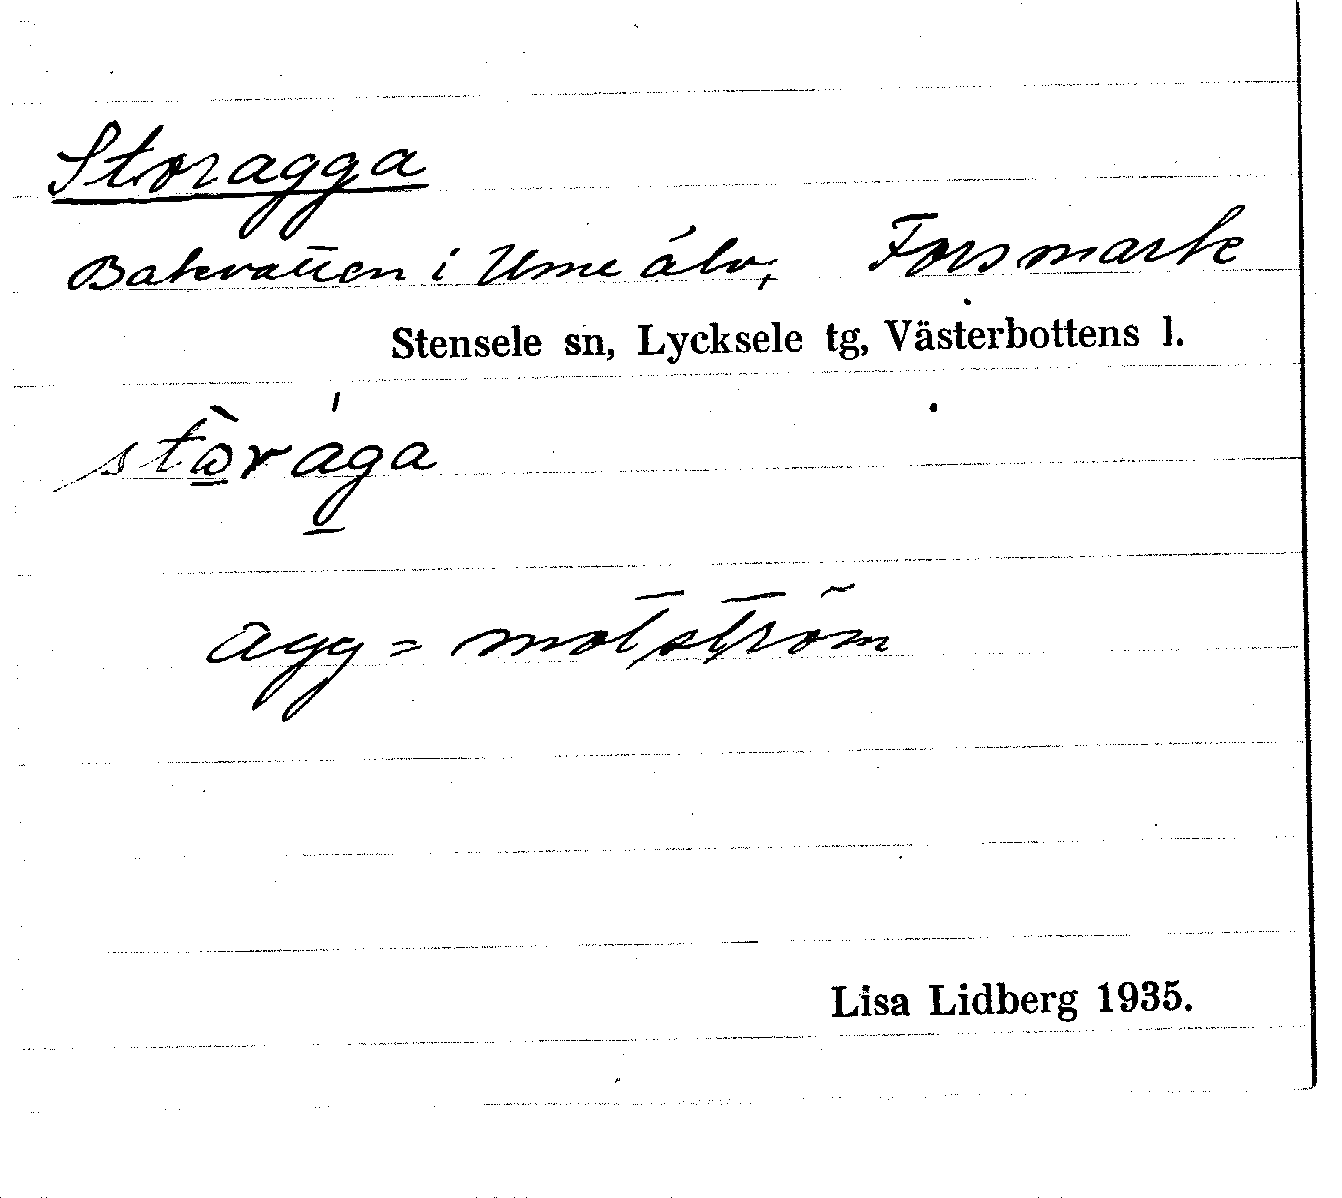 Storagga
Bakvatten i Ume älv, Forsmark
Stensele sn, Lycksele tg, Västerbottens l.
agg = motström
Lisa Lidberg 1935.